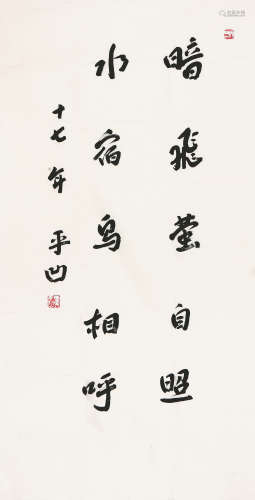 暗飛螢自照
水宿鳥相呼
十七年 平凹